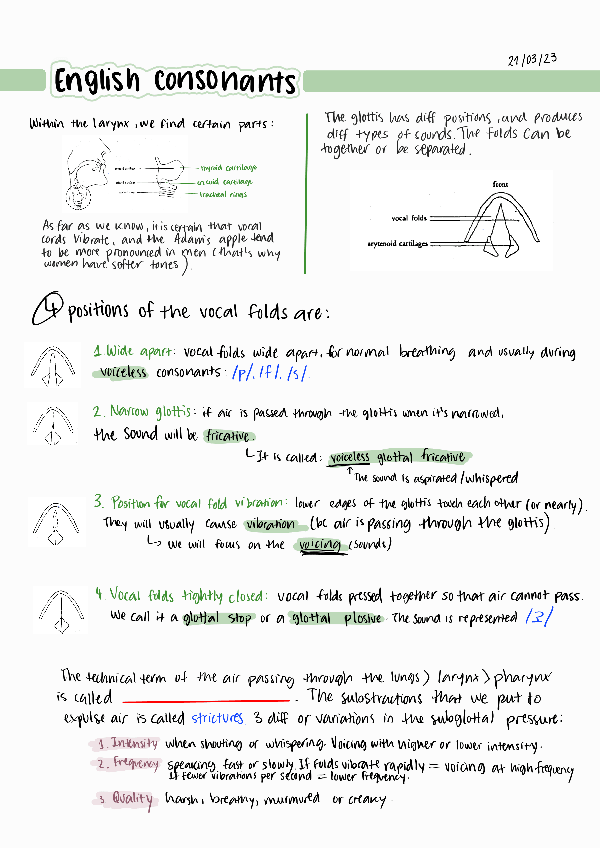 21/03/23
English consonants
Within the larynx, we find certain parts:
thyroid cartilage
cricoid cartilage
tracheal rings
As far as we know, it is certain that vocal
cords vibrate, and the Adam's apple tend
to be more pronounced in men (that's why
women have softer tones).
The glottis has diff positions, and produces
diff types of sounds. The folds can be
together or be separated.
front
vocal folds
arytenoid cartilages
4 positions of the vocal folds are:
1. Wide apart: vocal folds wide apart, for normal breathing and usually during
voiceless consonants: /p/, /f/, /s/
2. Narrow glottis: if air is passed through the glottis when it's narrowed,
the sound will be fricative.
It is called: voiceless glottal fricative
↑ The sound is aspirated/whispered
3. Position for vocal fold vibration: lower edges of the glottis touch each other (or nearly).
They will usually cause vibration (bc air is passing through the glottis)
↳ we will focus on the voicing (sounds)
4. Vocal folds tightly closed: vocal folds pressed together so that air cannot pass.
We call it a glottal stop or a glottal plosive. The sound is represented /ʔ/
The technical term of the air passing through the lungs > larynx > pharynx
is called ____________. The substractions that we put to
expulse air is called strictures. 3 diff or variations in the subglottal pressure:
1. Intensity when shouting or whispering. Voicing with higher or lower intensity.
2. Frequency speaking fast or slowly. If folds vibrate rapidly = voicing at high frequency
If fewer vibrations per second = lower frequency.
3. Quality harsh, breathy, murmured or creaky.